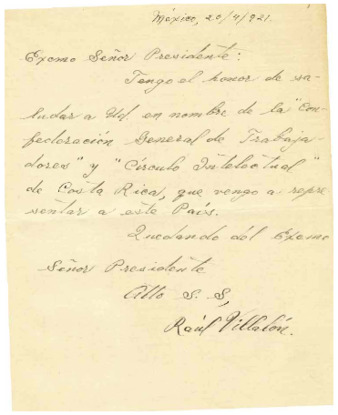 México, 20/4/921.
Exomo Señor Presidente:
Tengo el honor de sa-
ludar a Ud. en nombre de la "Con-
federación General de Trabaja-
dores" y "Círculo Intelectual"
de Costa Rica, que vengo a repre
sentar a este País.
Quedando del Exomo
Señor Presidente
Atto S. S,
Raúl Villalón.